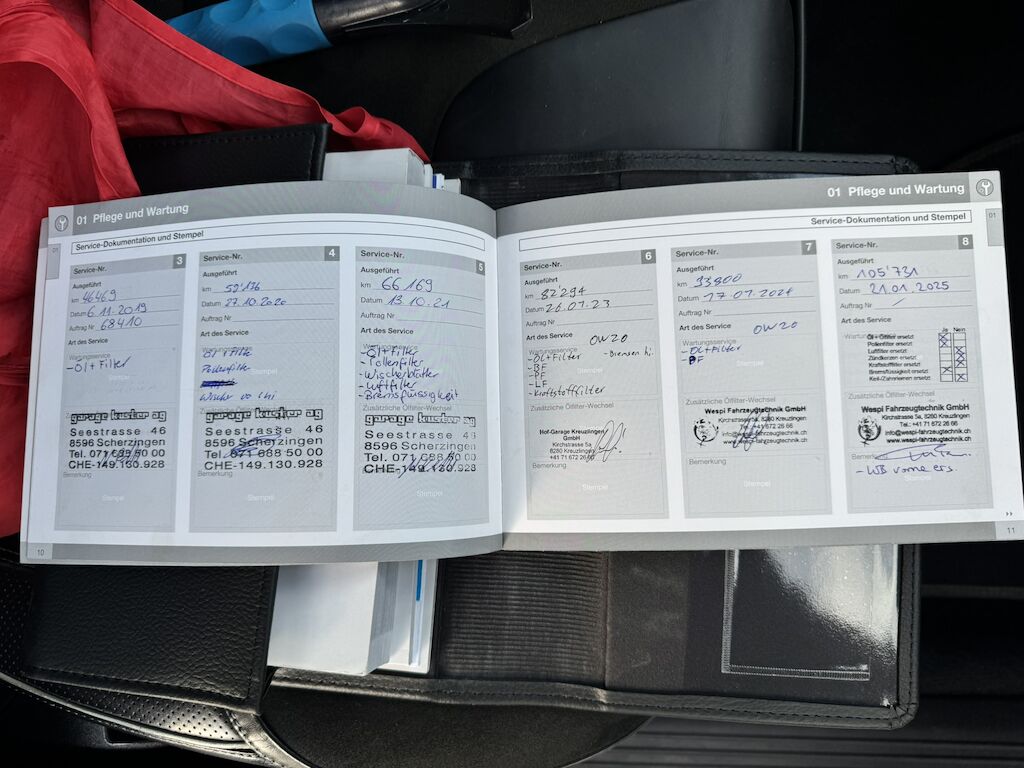 01 Pflege und Wartung
Service-Dokumentation und Stempel
01
Service-Nr. 3
Ausgeführt
km 46469
Datum 6.11.2019
Auftrag Nr 68410
Art des Service
Wartungsservice
- Öl + Filter
Stempel
Zusätzliche Ölfilter-Wechsel
garage kuster ag
Seestrasse 46
8596 Scherzingen
Tel. 071 688 50 00
CHE-149.130.928
Bemerkung
Stempel
10
Service-Nr. 4
Ausgeführt
km
Datum 27.10.2020
Auftrag Nr
Art des Service
Wartungsservice
Öl + Filter
Pollenfilter
Wischer vo + hi
Zusätzliche Ölfilter-Wechsel
garage kuster ag
Seestrasse 46
8596 Scherzingen
Tel. 071 688 50 00
CHE-149.130.928
Bemerkung
Stempel
Service-Nr. 5
Ausgeführt
km 66169
Datum 13.10.21
Auftrag Nr
Art des Service
Wartungsservice
- Öl + Filter
- Pollenfilter
- Wischerblätter
- Luftfilter
- Bremsflüssigkeit
Zusätzliche Ölfilter-Wechsel
garage kuster ag
Seestrasse 46
8596 Scherzingen
Tel. 071 688 50 00
CHE-149.130.928
Bemerkung
Stempel
01 Pflege und Wartung
Service-Dokumentation und Stempel
01
Service-Nr. 6
Ausgeführt
km 82294
Datum 26.07.23
Auftrag Nr
Art des Service
0W20
Wartungsservice
- Öl + Filter - Bremsen hi.
- BF
- PF
- LF
- Kraftstoffilter
Zusätzliche Ölfilter-Wechsel
Hof-Garage Kreuzlingen
GmbH
Kirchstrasse 5a
8280 Kreuzlingen
+41 71 672 26 66
Bemerkung
Stempel
Service-Nr. 7
Ausgeführt
km
Datum 17.07.2024
Auftrag Nr
Art des Service
0W20
Wartungsservice
- Öl + Filter
BF
Stempel
Zusätzliche Ölfilter-Wechsel
Wespi Fahrzeugtechnik GmbH
Kirchstrasse 5a, 8280 Kreuzlingen
Tel.: +41 71 672 26 66
info@wespi-fahrzeugtechnik.ch
www.wespi-fahrzeugtechnik.ch
Bemerkung
Stempel
Service-Nr. 8
Ausgeführt
km 105'731
Datum 21.01.2025
Auftrag Nr /
Art des Service
Ja Nein
Öl + Ölfilter ersetzt
Pollenfilter ersetzt
Luftfilter ersetzt
Zündkerzen ersetzt
Kraftstofffilter ersetzt
Bremsflüssigkeit ersetzt
Keil-/Zahnriemen ersetzt
Wespi Fahrzeugtechnik GmbH
Kirchstrasse 5a, 8280 Kreuzlingen
Tel.: +41 71 672 26 66
info@wespi-fahrzeugtechnik.ch
www.wespi-fahrzeugtechnik.ch
Bemerkung
- WB vorne ers.
Stempel
11